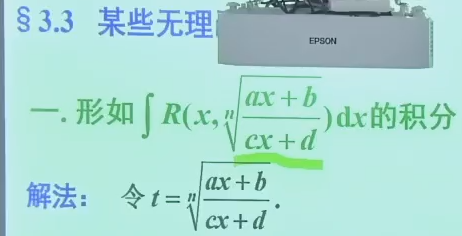 §3.3 某些无理
EPSON
一. 形如 ∫ R(x, ⁿ√((ax+b)/(cx+d)))dx 的积分
解法： 令 t = ⁿ√((ax+b)/(cx+d)).